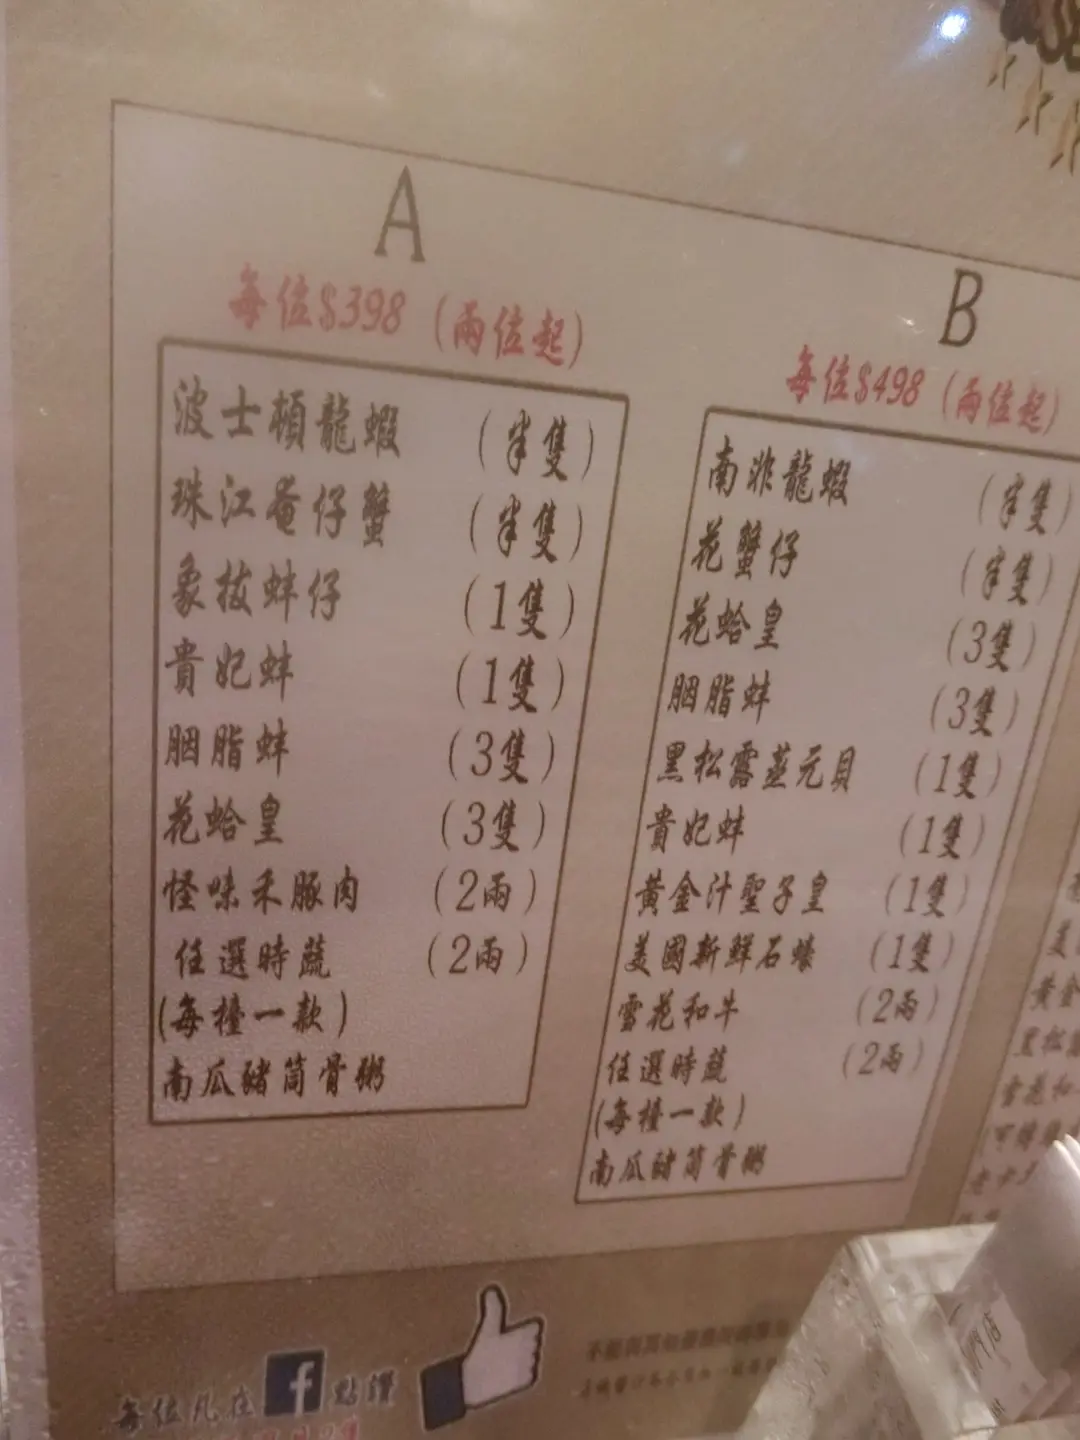 A
每位$398(兩位起)
波士頓龍蝦 (半隻)
珠江奄仔蟹 (半隻)
象拔蚌仔 (1隻)
貴妃蚌 (1隻)
胭脂蚌 (3隻)
花蛤皇 (3隻)
怪味禾豚肉 (2兩)
任選時蔬 (2兩)
(每檯一款)
南瓜豬筒骨粥
B
每位$498(兩位起)
南非龍蝦 (半隻)
花蟹仔 (半隻)
花蛤皇 (3隻)
胭脂蚌 (3隻)
黑松露蒸元貝 (1隻)
貴妃蚌 (1隻)
黃金汁聖子皇 (1隻)
美國新鮮石蠔 (1隻)
雪花和牛 (2兩)
任選時蔬 (2兩)
(每檯一款)
南瓜豬筒骨粥
美
黃金
黑松露
雪花和
每位凡在 f 點讚
門店